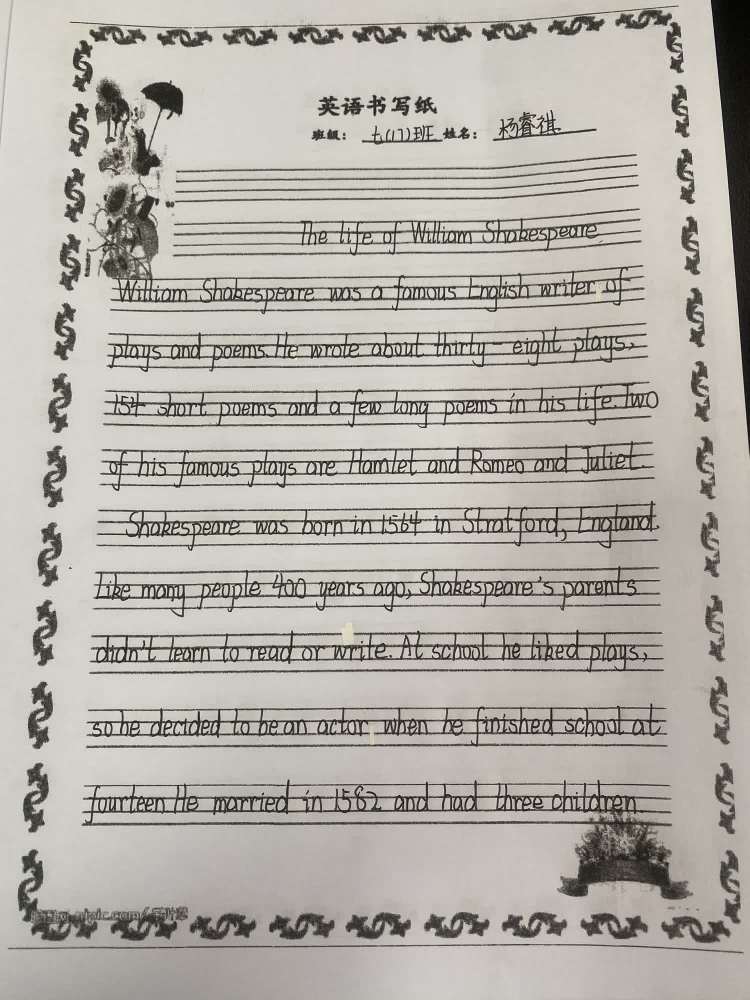 英语书写纸
班级： 七(17)班 姓名： 杨睿祺
The life of William Shakespeare
William Shakespeare was a famous English writer of
plays and poems. He wrote about thirty-eight plays,
154 short poems and a few long poems in his life. Two
of his famous plays are Hamlet and Romeo and Juliet.
Shakespeare was born in 1564 in Stratford, England.
Like many people 400 years ago, Shakespeare's parents
didn't learn to read or write. At school he liked plays,
so he decided to be an actor when he finished school at
fourteen He married in 1582 and had three children